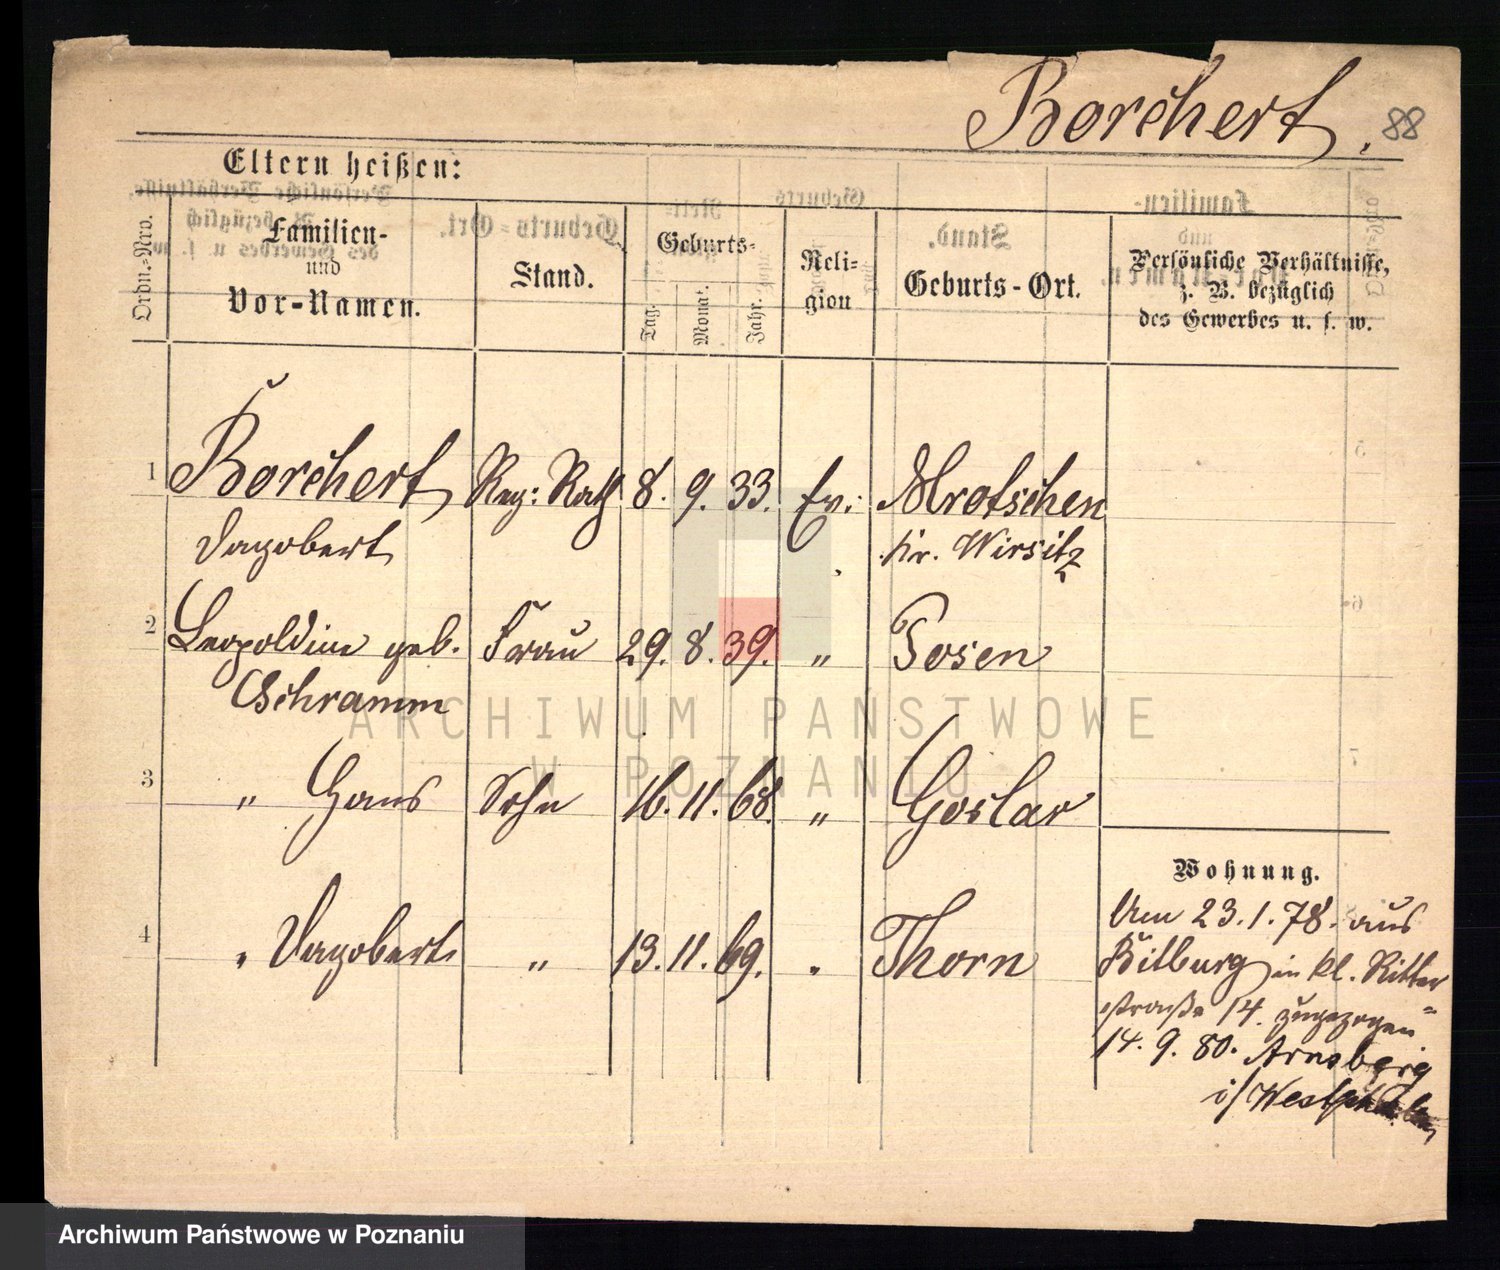 Borchert.
88
Eltern heißen:
Ordn.-Nro.
Familien-
und
Vor-Namen.
Stand.
Geburts-
Tag.
Monat.
Jahr.
Reli-
gion
Geburts-Ort.
Persönliche Verhältnisse,
z. B. bezüglich
des Gewerbes u. s. w.
1 Borchert Reg: Rath 8. 9. 33. Ev. Mrotschen
Dagobert Kr. Wirsitz
2 Leopoldine geb. Frau 29. 8. 39. " Posen
Schramm
3 " Hans Sohn 16. 11. 68. " Goslar
4 " Dagobert " 13. 11. 69. " Thorn
Wohnung.
Am 23.1.78. aus
Bitburg in kl. Ritter
straße 14. zugezogen
14. 9. 80. Arnsberg
i/Westphalen
ARCHIWUM PAŃSTWOWE
W POZNANIU
Archiwum Państwowe w Poznaniu